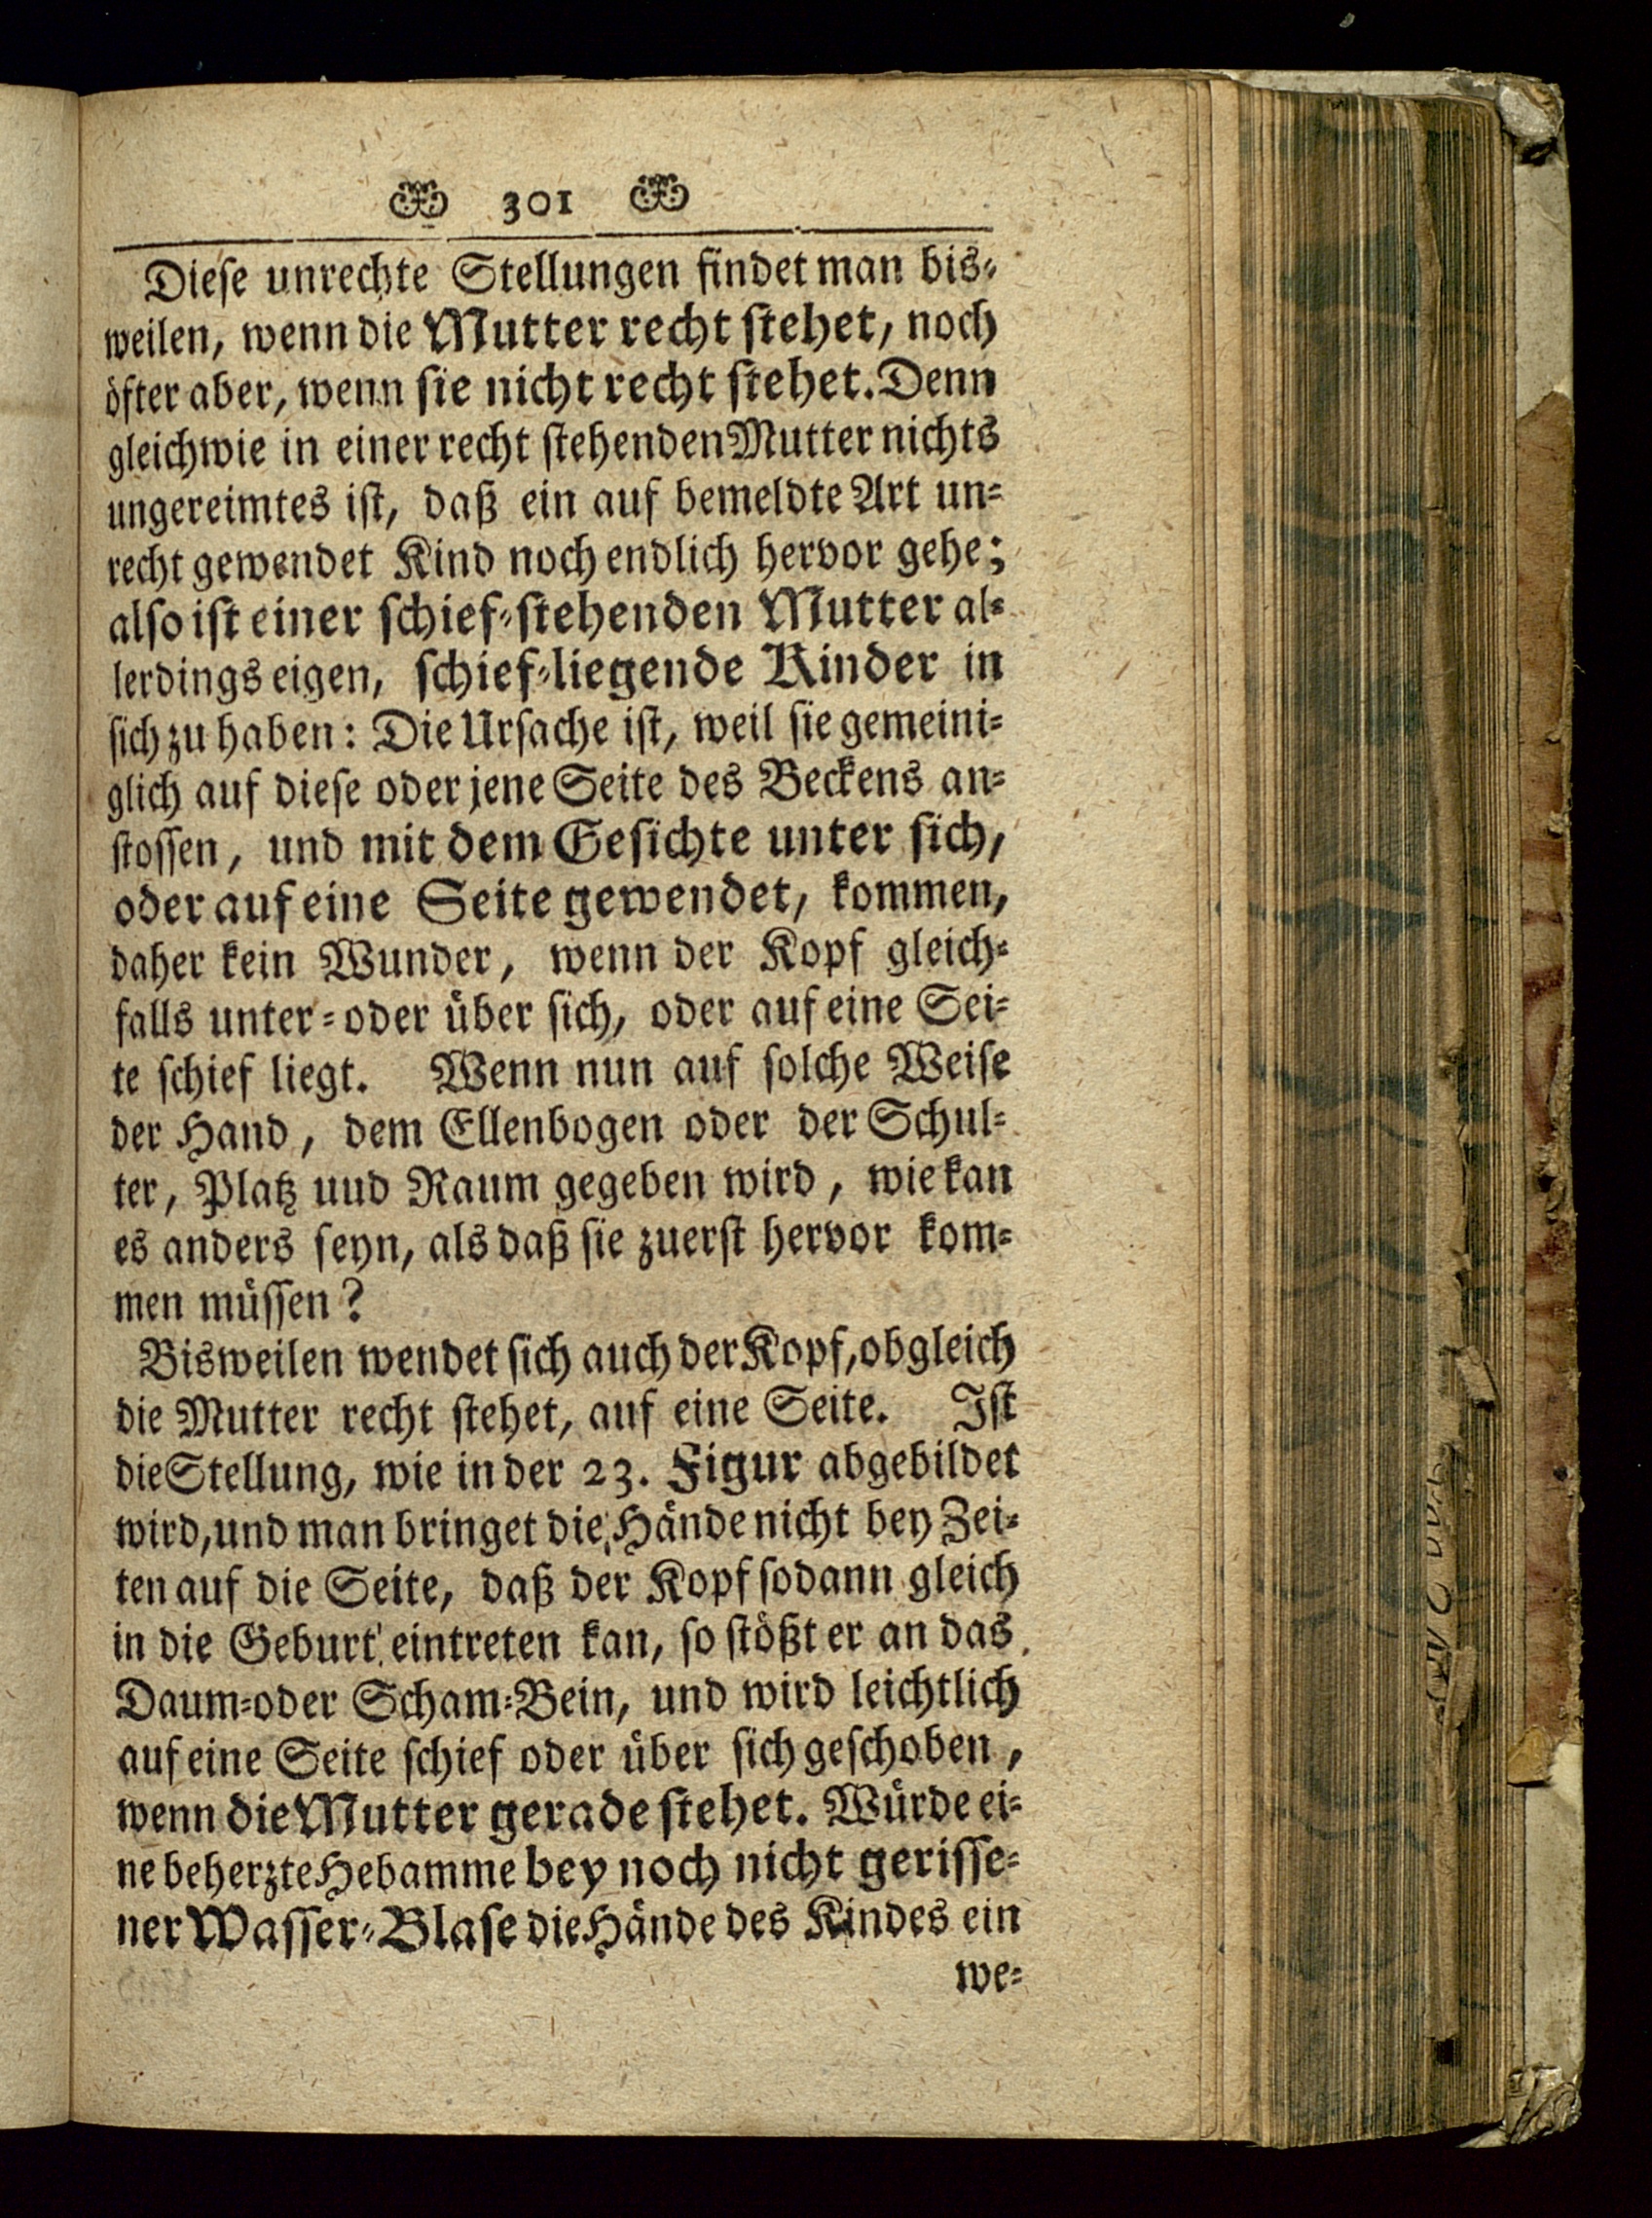 301
Diese unrechte Stellungen findet man bis-
weilen, wenn die Mutter recht stehet, noch
öfter aber, wenn sie nicht recht stehet. Denn
gleichwie in einer recht stehenden Mutter nichts
ungereimtes ist, daß ein auf bemeldte Art un-
recht gewendet Kind noch endlich hervor gehe;
also ist einer schief-stehenden Mutter al-
lerdings eigen, schief-liegende Kinder in
sich zu haben: Die Ursache ist, weil sie gemeini-
glich auf diese oder jene Seite des Beckens an-
stossen, und mit dem Gesichte unter sich,
oder auf eine Seite gewendet, kommen,
daher kein Wunder, wenn der Kopf gleich-
falls unter- oder über sich, oder auf eine Sei-
te schief liegt. Wenn nun auf solche Weise
der Hand, dem Ellenbogen oder der Schul-
ter, Platz uud Raum gegeben wird, wie kan
es anders seyn, als daß sie zuerst hervor kom-
men müssen?
Bisweilen wendet sich auch der Kopf, obgleich
die Mutter recht stehet, auf eine Seite. Ist
die Stellung, wie in der 23. Figur abgebildet
wird, und man bringet die Hände nicht bey Zei-
ten auf die Seite, daß der Kopf sodann gleich
in die Geburt eintreten kan, so stößt er an das
Daum-oder Scham-Bein, und wird leichtlich
auf eine Seite schief oder über sich geschoben,
wenn die Mutter gerade stehet. Würde ei-
ne beherzte Hebamme bey noch nicht gerisse-
ner Wasser-Blase die Hände des Kindes ein
we-